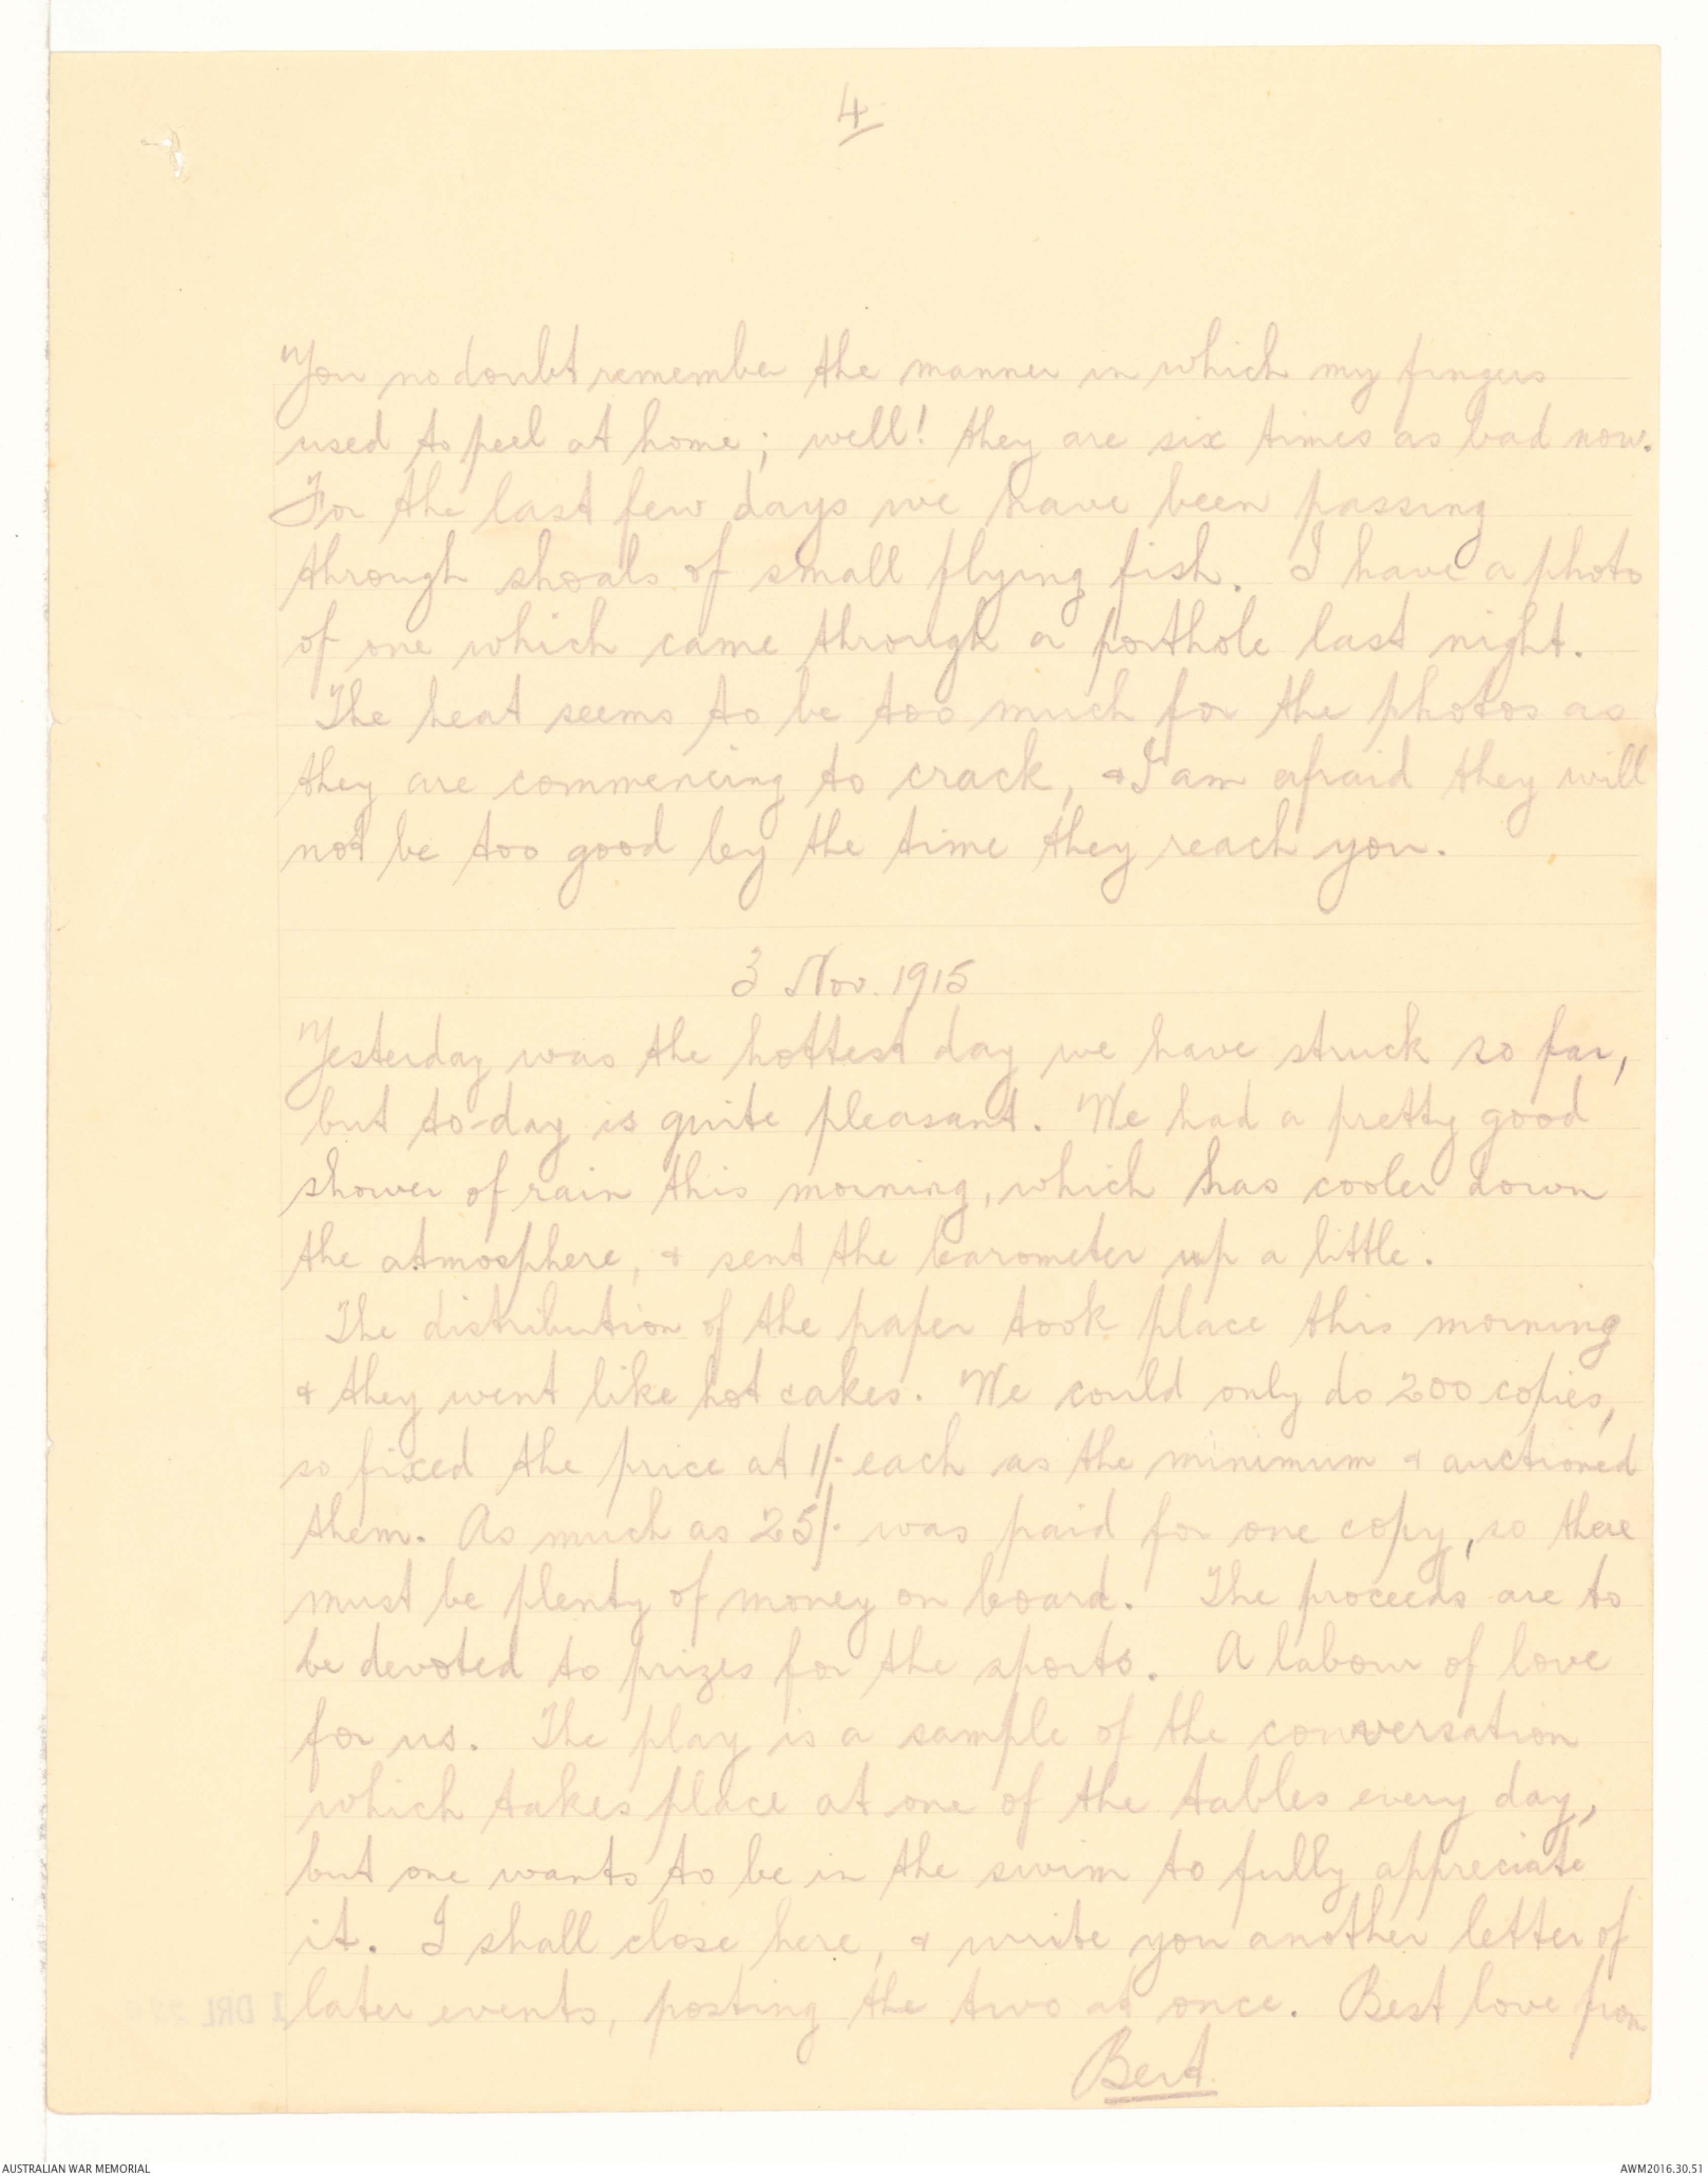 4
You no doubt remember the manner in which my fingers
used to peel at home; well! they are six times as bad now.
For the last few days we have been passing
through shoals of small flying fish. I have a photo
of one which came through a porthole last night.
The heat seems to be too much for the photos as
they are commencing to crack, & I am afraid they will
not be too good by the time they reach you.
3 Nov. 1915
Yesterday was the hottest day we have struck so far,
but to-day is quite pleasant. We had a pretty good
shower of rain this morning, which has cooled down
the atmosphere, & sent the barometer up a little.
The distribution of the paper took place this morning
& they went like hot cakes. We could only do 200 copies,
so fixed the price at 1/- each as the minimum & auctioned
them. As much as 25/- was paid for one copy, so there
must be plenty of money on board. The proceeds are to
be devoted to prizes for the sports. A labour of love
for us. The play is a sample of the conversation
which takes place at one of the tables every day,
but one wants to be in the swim to fully appreciate
it. I shall close here, & write you another letter of
later events, posting the two at once. Best love from
Bert.
1 DRL
AUSTRALIAN WAR MEMORIAL
AWM2016.30.51